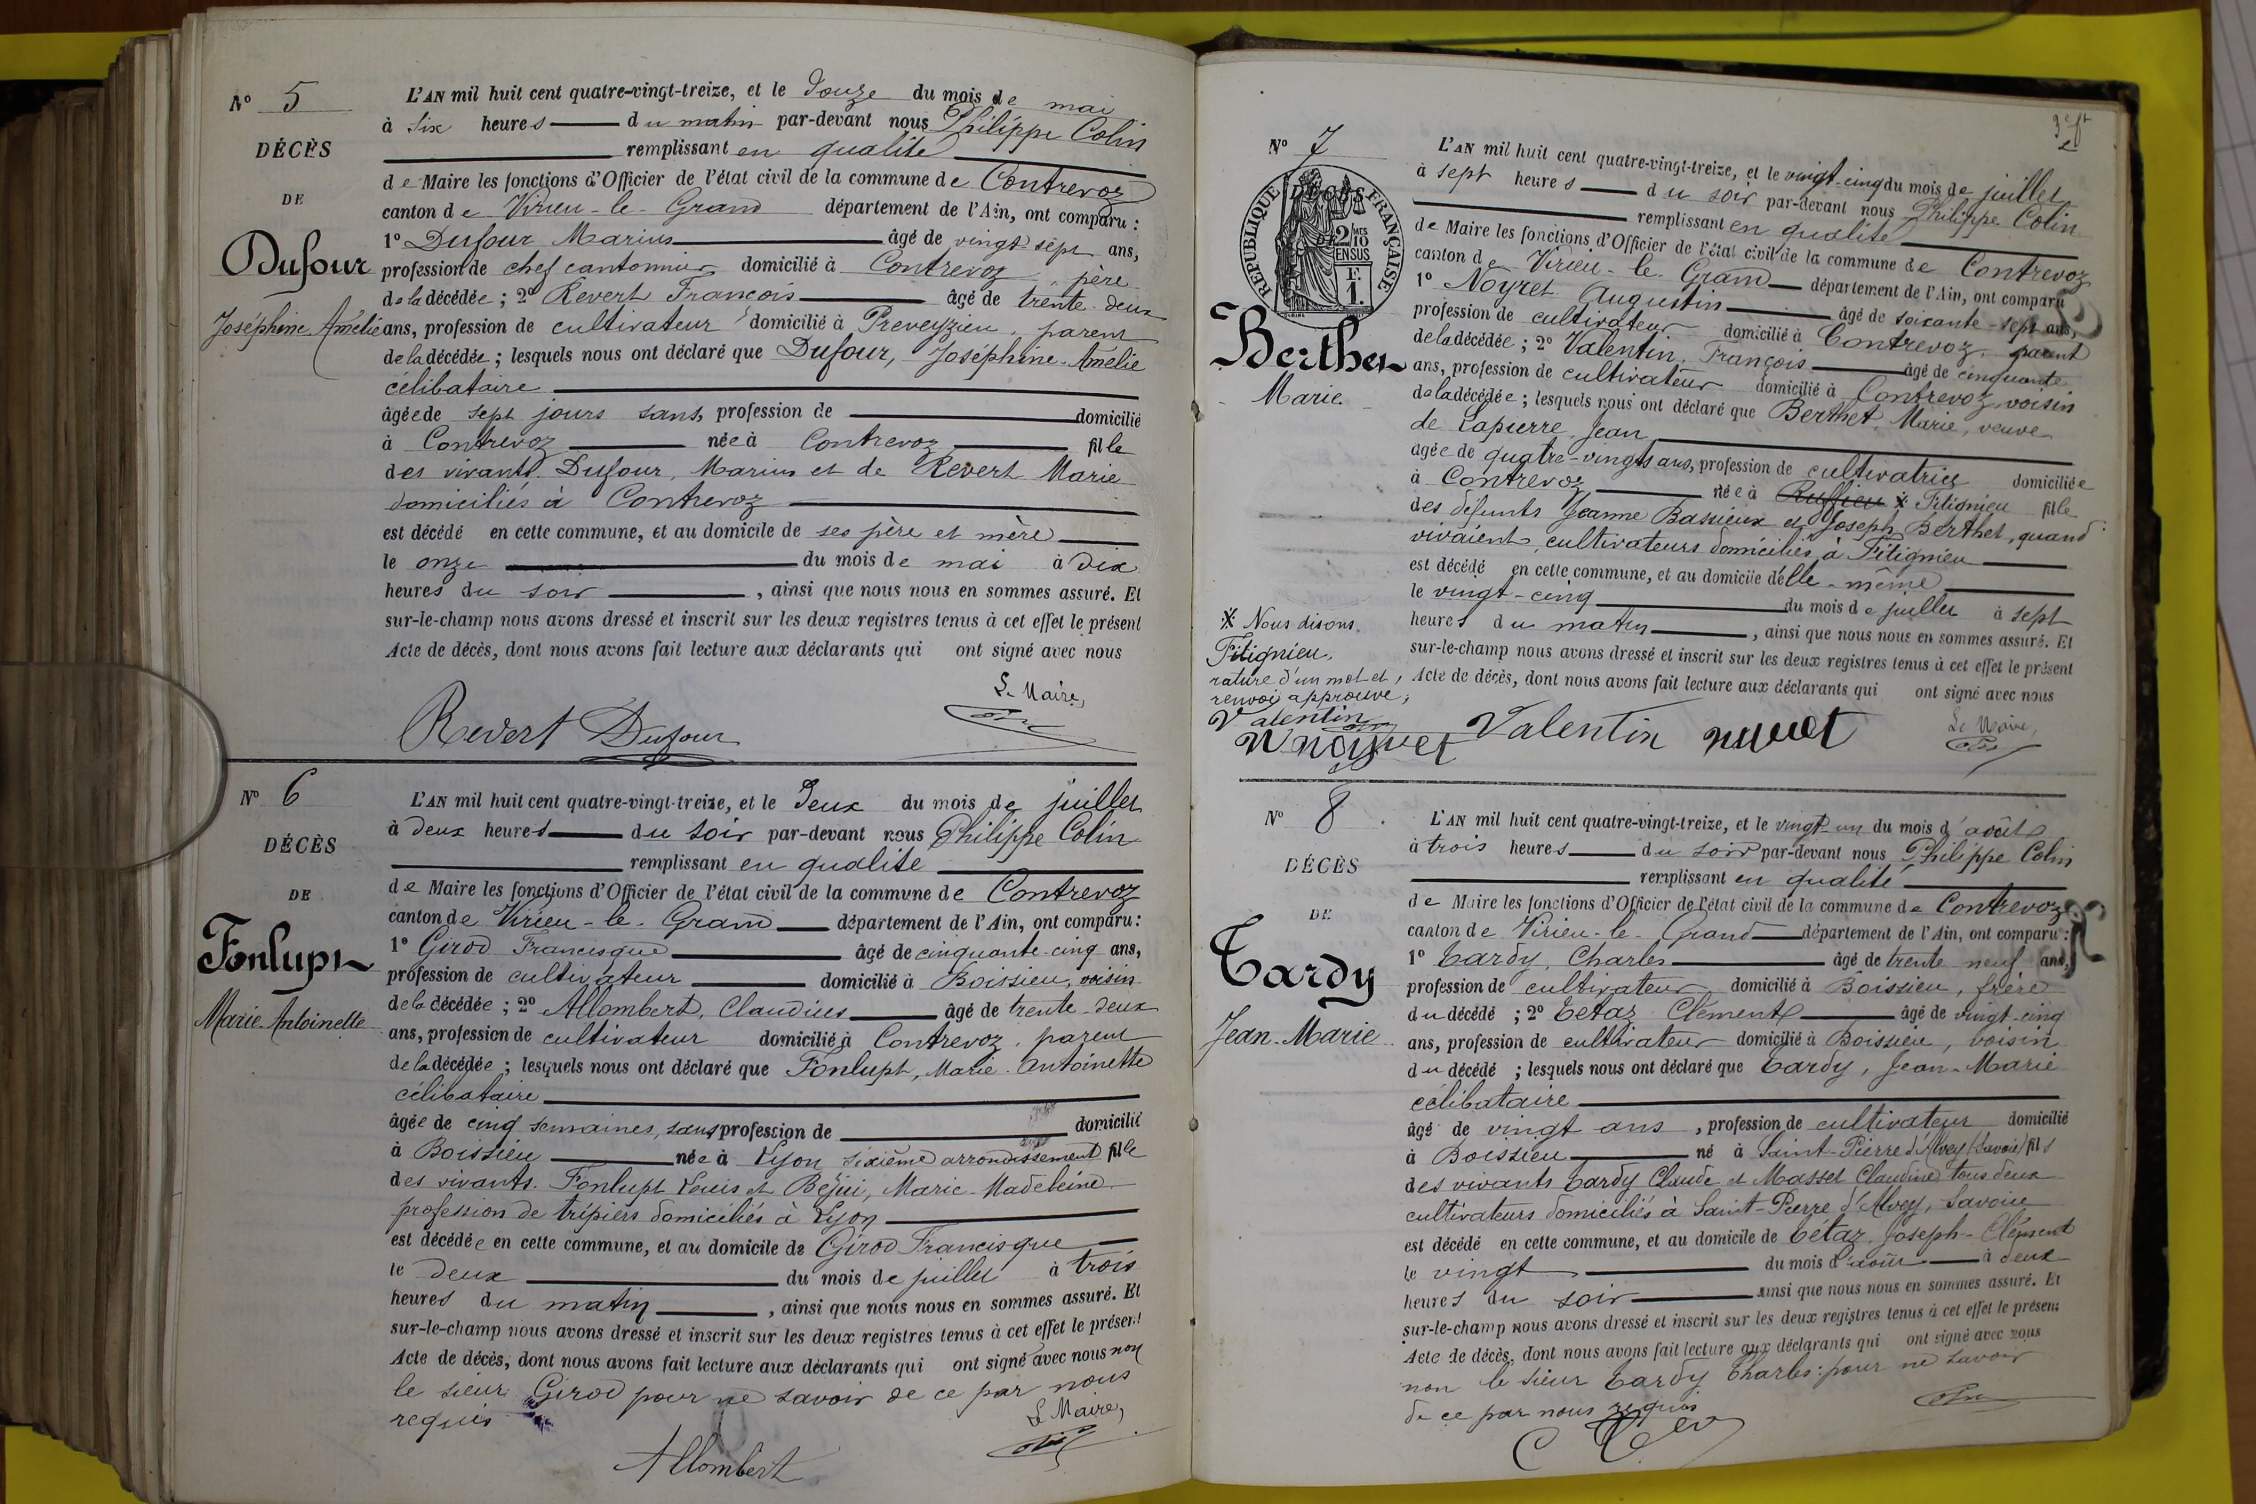 N° 5
DÉCÈS
DE
Dufour
Joséphine Amélie
L'AN mil huit cent quatre-vingt-treize, et le Douze du mois de mai
à six heures du matin par-devant nous Philippe Colin
remplissant en qualité
de Maire les fonctions d'Officier de l'état civil de la commune de Contrevoz
canton de Virieu-le-Grand département de l'Ain, ont comparu :
1° Dufour Marius âgé de vingt sept ans,
profession de chef cantonnier domicilié à Contrevoz père
de la décédée ; 2° Revert François âgé de trente-deux
ans, profession de cultivateur domicilié à Preveyzieu, parent
de la décédée ; lesquels nous ont déclaré que Dufour, Joséphine-Amélie
célibataire
âgée de sept jours sans, profession de domicilié
à Contrevoz née à Contrevoz fille
des vivants Dufour, Marius et de Revert Marie
domiciliés à Contrevoz
est décédé en cette commune, et au domicile de ses père et mère
le onze du mois de mai à dix
heures du soir , ainsi que nous nous en sommes assuré. Et
sur-le-champ nous avons dressé et inscrit sur les deux registres tenus à cet effet le présent
Acte de décès, dont nous avons fait lecture aux déclarants qui ont signé avec nous
Le Maire,
Revert Dufour
N° 6
DÉCÈS
DE
Fonlupt
Marie-Antoinette
L'AN mil huit cent quatre-vingt-treize, et le Deux du mois de juillet
à deux heures du soir par-devant nous Philippe Colin
remplissant en qualité
de Maire les fonctions d'Officier de l'état civil de la commune de Contrevoz
canton de Virieu-le-Grand département de l'Ain, ont comparu :
1° Girod Francisque âgé de cinquante-cinq ans,
profession de cultivateur domicilié à Boissieu, voisin
de la décédée ; 2° Allombert, Claudius âgé de trente-deux
ans, profession de cultivateur domicilié à Contrevoz, parent
de la décédée ; lesquels nous ont déclaré que Fonlupt, Marie-Antoinette
célibataire
âgée de cinq semaines, sans profession de domicilié
à Boissieu née à Lyon sixième arrondissement fille
des vivants Fonlupt Louis et Bejui, Marie-Madeleine
profession de tripiers domiciliés à Lyon
est décédée en cette commune, et au domicile de Girod Francisque
le deux du mois de juillet à trois
heures du matin , ainsi que nous nous en sommes assuré. Et
sur-le-champ nous avons dressé et inscrit sur les deux registres tenus à cet effet le présent
Acte de décès, dont nous avons fait lecture aux déclarants qui ont signé avec nous non
le sieur Girod pour ne savoir de ce par nous
requis
Le Maire,
Allombert
N° 7
DÉCÈS
DE
RÉPUBLIQUE FRANÇAISE
2/10 EN SUS
Berthet
Marie
L'AN mil huit cent quatre-vingt-treize, et le vingt-cinq du mois de juillet
à sept heures du soir par-devant nous Philippe Colin
remplissant en qualité
de Maire les fonctions d'Officier de l'état civil de la commune de Contrevoz
canton de Virieu-le-Grand département de l'Ain, ont comparu
1° Noyret Augustin âgé de soixante-sept ans,
profession de cultivateur domicilié à Contrevoz, parent
de la décédée ; 2° Valentin, François âgé de cinquante
ans, profession de cultivateur domicilié à Contrevoz, voisin
de la décédée ; lesquels nous ont déclaré que Berthet, Marie, veuve
de Lapierre Jean
âgée de quatre-vingts ans, profession de cultivatrice domiciliée
à Contrevoz née à Ruffieu x Fitignieu fille
des défunts Jeanne Bassieux et Joseph Berthet, quand
vivaient, cultivateurs domiciliés à Fitignieu
est décédé en cette commune, et au domicile d'elle-même
le vingt-cinq du mois de juillet à sept
heures du matin , ainsi que nous nous en sommes assuré. Et
sur-le-champ nous avons dressé et inscrit sur les deux registres tenus à cet effet le présent
Acte de décès, dont nous avons fait lecture aux déclarants qui ont signé avec nous
x Nous disons
Fitignieu,
rature d'un mot et
renvoi approuvé,
Valentin
Noyret
Valentin Noyret
Le Maire,
N° 8
DÉCÈS
DE
Tardy
Jean-Marie
L'AN mil huit cent quatre-vingt-treize, et le vingt-un du mois d'août
à trois heures du soir par-devant nous Philippe Colin
remplissant en qualité
de Maire les fonctions d'Officier de l'état civil de la commune de Contrevoz
canton de Virieu-le-Grand département de l'Ain, ont comparu :
1° Tardy, Charles âgé de trente neuf ans,
profession de cultivateur domicilié à Boissieu, frère
du décédé ; 2° Tétaz Clément âgé de vingt-cinq
ans, profession de cultivateur domicilié à Boissieu, voisin
du décédé ; lesquels nous ont déclaré que Tardy, Jean-Marie
célibataire
âgé de vingt ans , profession de cultivateur domicilié
à Boissieu né à Saint-Pierre d'Alvey (Savoie) fils
des vivants Tardy Claude et Masset Claudine tous deux
cultivateurs domiciliés à Saint-Pierre d'Alvey, Savoie
est décédé en cette commune, et au domicile de Tétaz, Joseph-Clément
le vingt du mois d'août à deux
heures du soir ainsi que nous nous en sommes assuré. Et
sur-le-champ nous avons dressé et inscrit sur les deux registres tenus à cet effet le présent
Acte de décès, dont nous avons fait lecture aux déclarants qui ont signé avec nous
non le sieur Tardy Charles pour ne savoir
de ce par nous requis